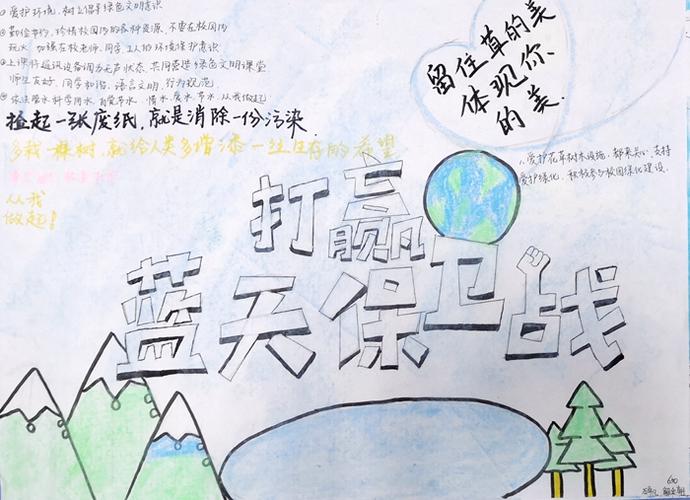 ①爱护环境,树立倡导绿色文明意识
②勤俭节约,珍惜校园内的各种资源,不要在校园内
玩火,加强在校老师、同学、工人的环境保护意识
③上课将通讯设备调为无声状态,共同营造绿色文明课堂
师生友好,同学和谐,语言文明,行为规范
科学用水,自觉节水,惜水、爱水、节水,从我做起
捡起一张废纸,就是消除一份污染.
多栽一棵树,就给人类多增添一丝生存的希望
从我
做起!
留住草的美
体现你
的美.
爱护花草树木设施,都来关心、支持
爱护绿化,积极参与校园绿化建设.
打赢
蓝天保卫战